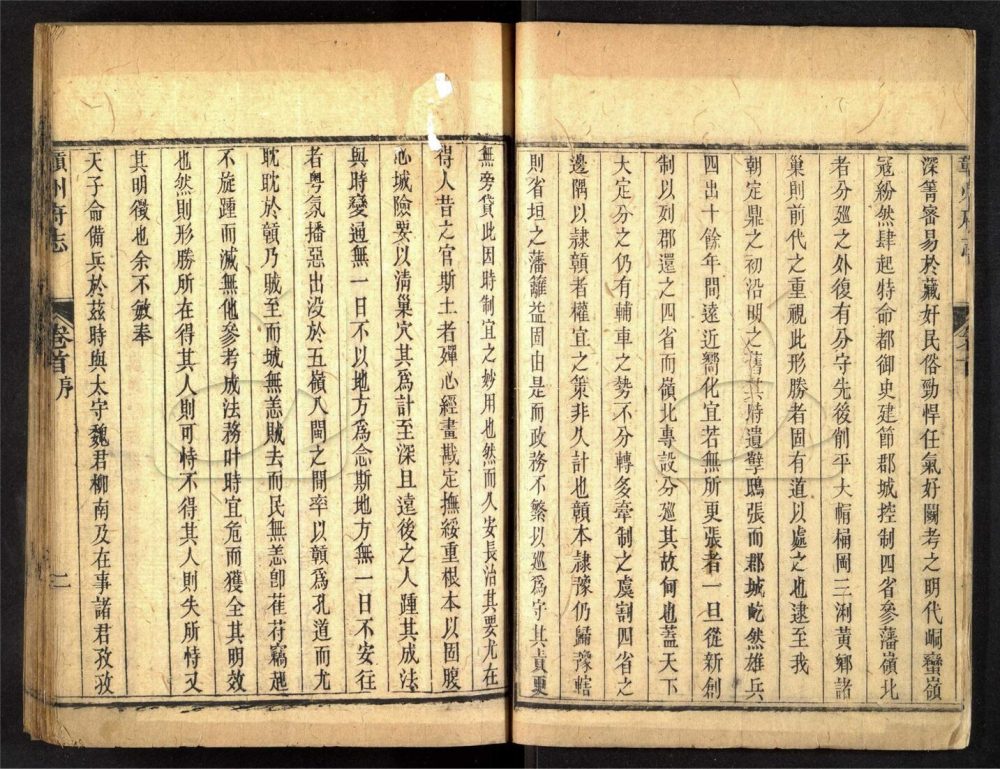 深箐密易於藏奸民俗勁悍任氣好鬭考之明代峒蠻嶺
冠紛然肆起特命都御史建節郡城控制四省參藩嶺北
者分廵之外復有分守先後創平大㡌桶岡三浰黃鄉諸
巢則前代之重視此形勝者固有道以處之也逮至我
朝定鼎之初沿明之舊其時遺孽鴟張而郡城屹然雄兵
四出十餘年間遠近嚮化宜若無所更張者一旦從新創
制以列郡還之四省而嶺北專設分廵其故何也蓋天下
大定分之仍有輔車之勢不分轉多牽制之虞割四省之
邊隅以隸贛者權宜之策非久計也贛本隸豫仍歸豫轄
則省垣之藩籬益固由是而政務不繁以廵為守其責更
無旁貸此因時制宜之妙用也然而久安長治其要尤在
得人昔之官斯土者殫心經畫戡定撫綏重根本以固腹
心城險要以清巢穴其為計至深且遠後之人踵其成法
與時變通無一日不以地方為念斯地方無一日不安往
者粵氛播惡出没於五嶺八閩之間率以贛為孔道而尤
耽耽於贛乃賊至而城無恙賊去而民無恙卽萑苻竊起
不旋踵而滅無他參考成法務叶時宜危而獲全其明效
也然則形勝所在得其人則可恃不得其人則失所恃又
其明徵也余不敏奉
天子命備兵於茲時與太守魏君柳南及在事諸君孜孜
贛州府志
卷首 序
二